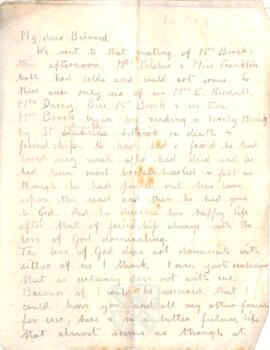 My dear Beloved
We went to that meeting of Mrs Brooks
this afternoon. Mr Pilcher & Miss Franklin
both had colds and could not come. So
there were only six of us Mrs E. Rendall,
Mrs Darcy, Mrs Brook & us two.
Mrs Brook began by reading a lovely thing
by St on death &
friendship. He had had a friend he had
loved very much who had died and he
had been most brokenhearted & felt as
though he had poured out his love
upon the sand and then he had gone
to God. And he describes his happy life
after that of friendship always with the
love of God dominating.
The love of God does not dominate with
either of us I think, I am just realising
that so certainly not with me.
Because if I could be assured that I
could have you and all my other friends
for ever, here in a better future life
that almost seems as though it